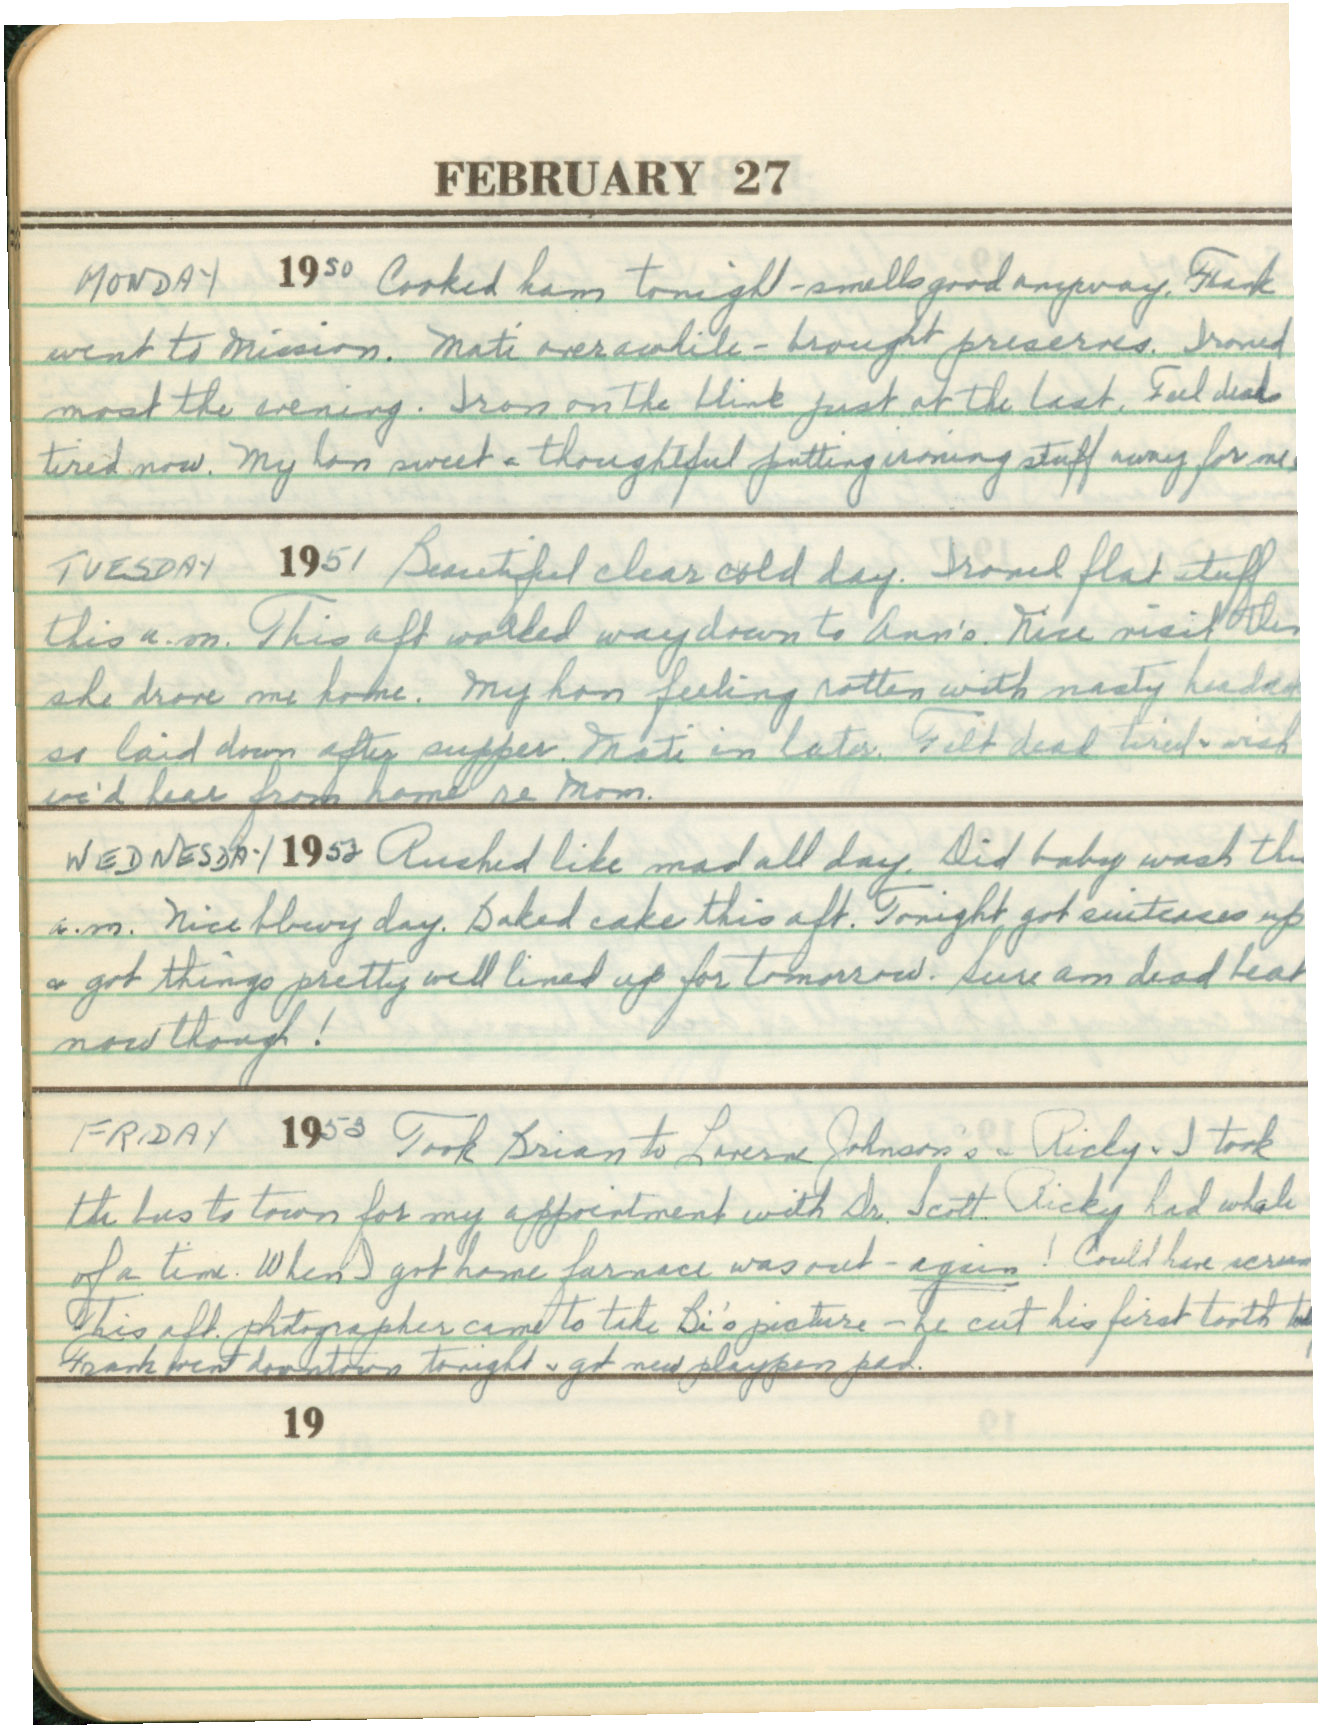 FEBRUARY 27
MONDAY 1950 Cooked ham tonight - smells good anyway. Frank
went to Mission. Mati over awhile - brought preserves. Ironed
most the evening. Iron on the blink just at the last. Feel dead
tired now. My hon sweet & thoughtful putting ironing stuff away for me.
TUESDAY 1951 Beautiful clear cold day. Ironed flat stuff
this a.m. This aft walked way down to Ann's. Nice visit then
she drove me home. My hon feeling rotten with nasty headac
so laid down after supper. Mati in later. Felt dead tired & wish
we'd hear from home re Mom.
WEDNESDAY 1952 Rushed like mad all day. Did baby wash this
a.m. Nice blowy day. Baked cake this aft. Tonight got suitcases up
& got things pretty well lined up for tomorrow. Sure am dead beat
now though!
FRIDAY 1953 Took Brian to Laverne Johnson's & Ricky & I took
the bus to town for my appointment with Dr. Scott. Ricky had whale
of a time. When I got home furnace was out - again! Could have scream
This aft. photographer came to take Bri's picture - he cut his first tooth
Frank went downtown tonight & got new playpen pad.
19